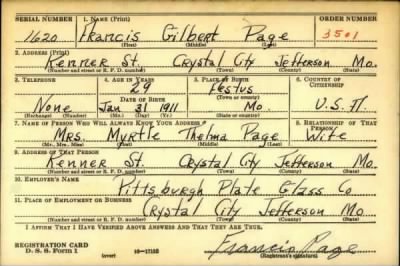 SERIAL NUMBER 1. NAME (Print) ORDER NUMBER
1620 Francis Gilbert Page 3501
(First) (Middle) (Last)
2. ADDRESS (Print)
Kenner St. Crystal City Jefferson Mo.
(Number and street or R. F. D. number) (Town) (County) (State)
3. TELEPHONE 4. AGE IN YEARS 5. PLACE OF BIRTH 6. COUNTRY OF CITIZENSHIP
29 Festus
DATE OF BIRTH (Town or county)
None Jan 31 1911 Mo. U.S.A.
(Exchange) (Number) (Mo.) (Day) (Yr.) (State or country)
7. NAME OF PERSON WHO WILL ALWAYS KNOW YOUR ADDRESS 8. RELATIONSHIP OF THAT PERSON
Mrs. Myrtle Thelma Page Wife
(Mr., Mrs., Miss) (First) (Middle) (Last)
9. ADDRESS OF THAT PERSON
Kenner St. Crystal City Jefferson Mo.
(Number and street or R. F. D. number) (Town) (County) (State)
10. EMPLOYER'S NAME
Pittsburgh Plate Glass Co
11. PLACE OF EMPLOYMENT OR BUSINESS
Crystal City Jefferson Mo.
(Number and street or R. F. D. number) (Town) (County) (State)
I AFFIRM THAT I HAVE VERIFIED ABOVE ANSWERS AND THAT THEY ARE TRUE.
REGISTRATION CARD
D. S. S. Form 1 (over) 16—17105 Francis Page
(Registrant's signature)